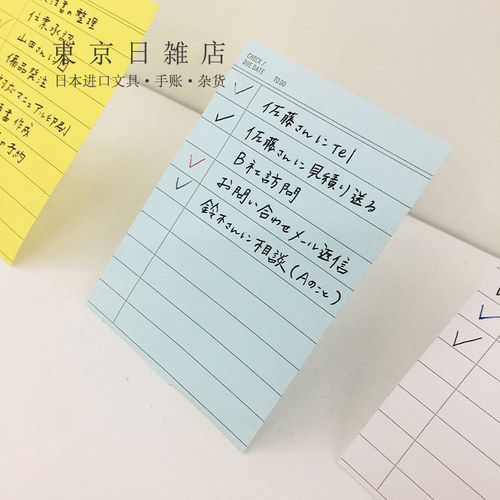 東京日雑店
日本进口文具・手账・杂货
の整理
仕業承認
山田さんに
備品発注
マニュアル印刷
作成
の予約
CHECK /
DUE DATE TO DO
佐藤さんにtel
佐藤さんに見積り送る
B社訪問
お問い合わせメール返信
鈴木さんに相談(Aのこと)